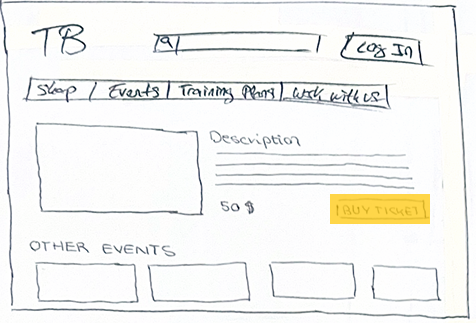 TB Log In
Shop Events Training Plans Work with us
Description
50 $
BUY TICKET
OTHER EVENTS